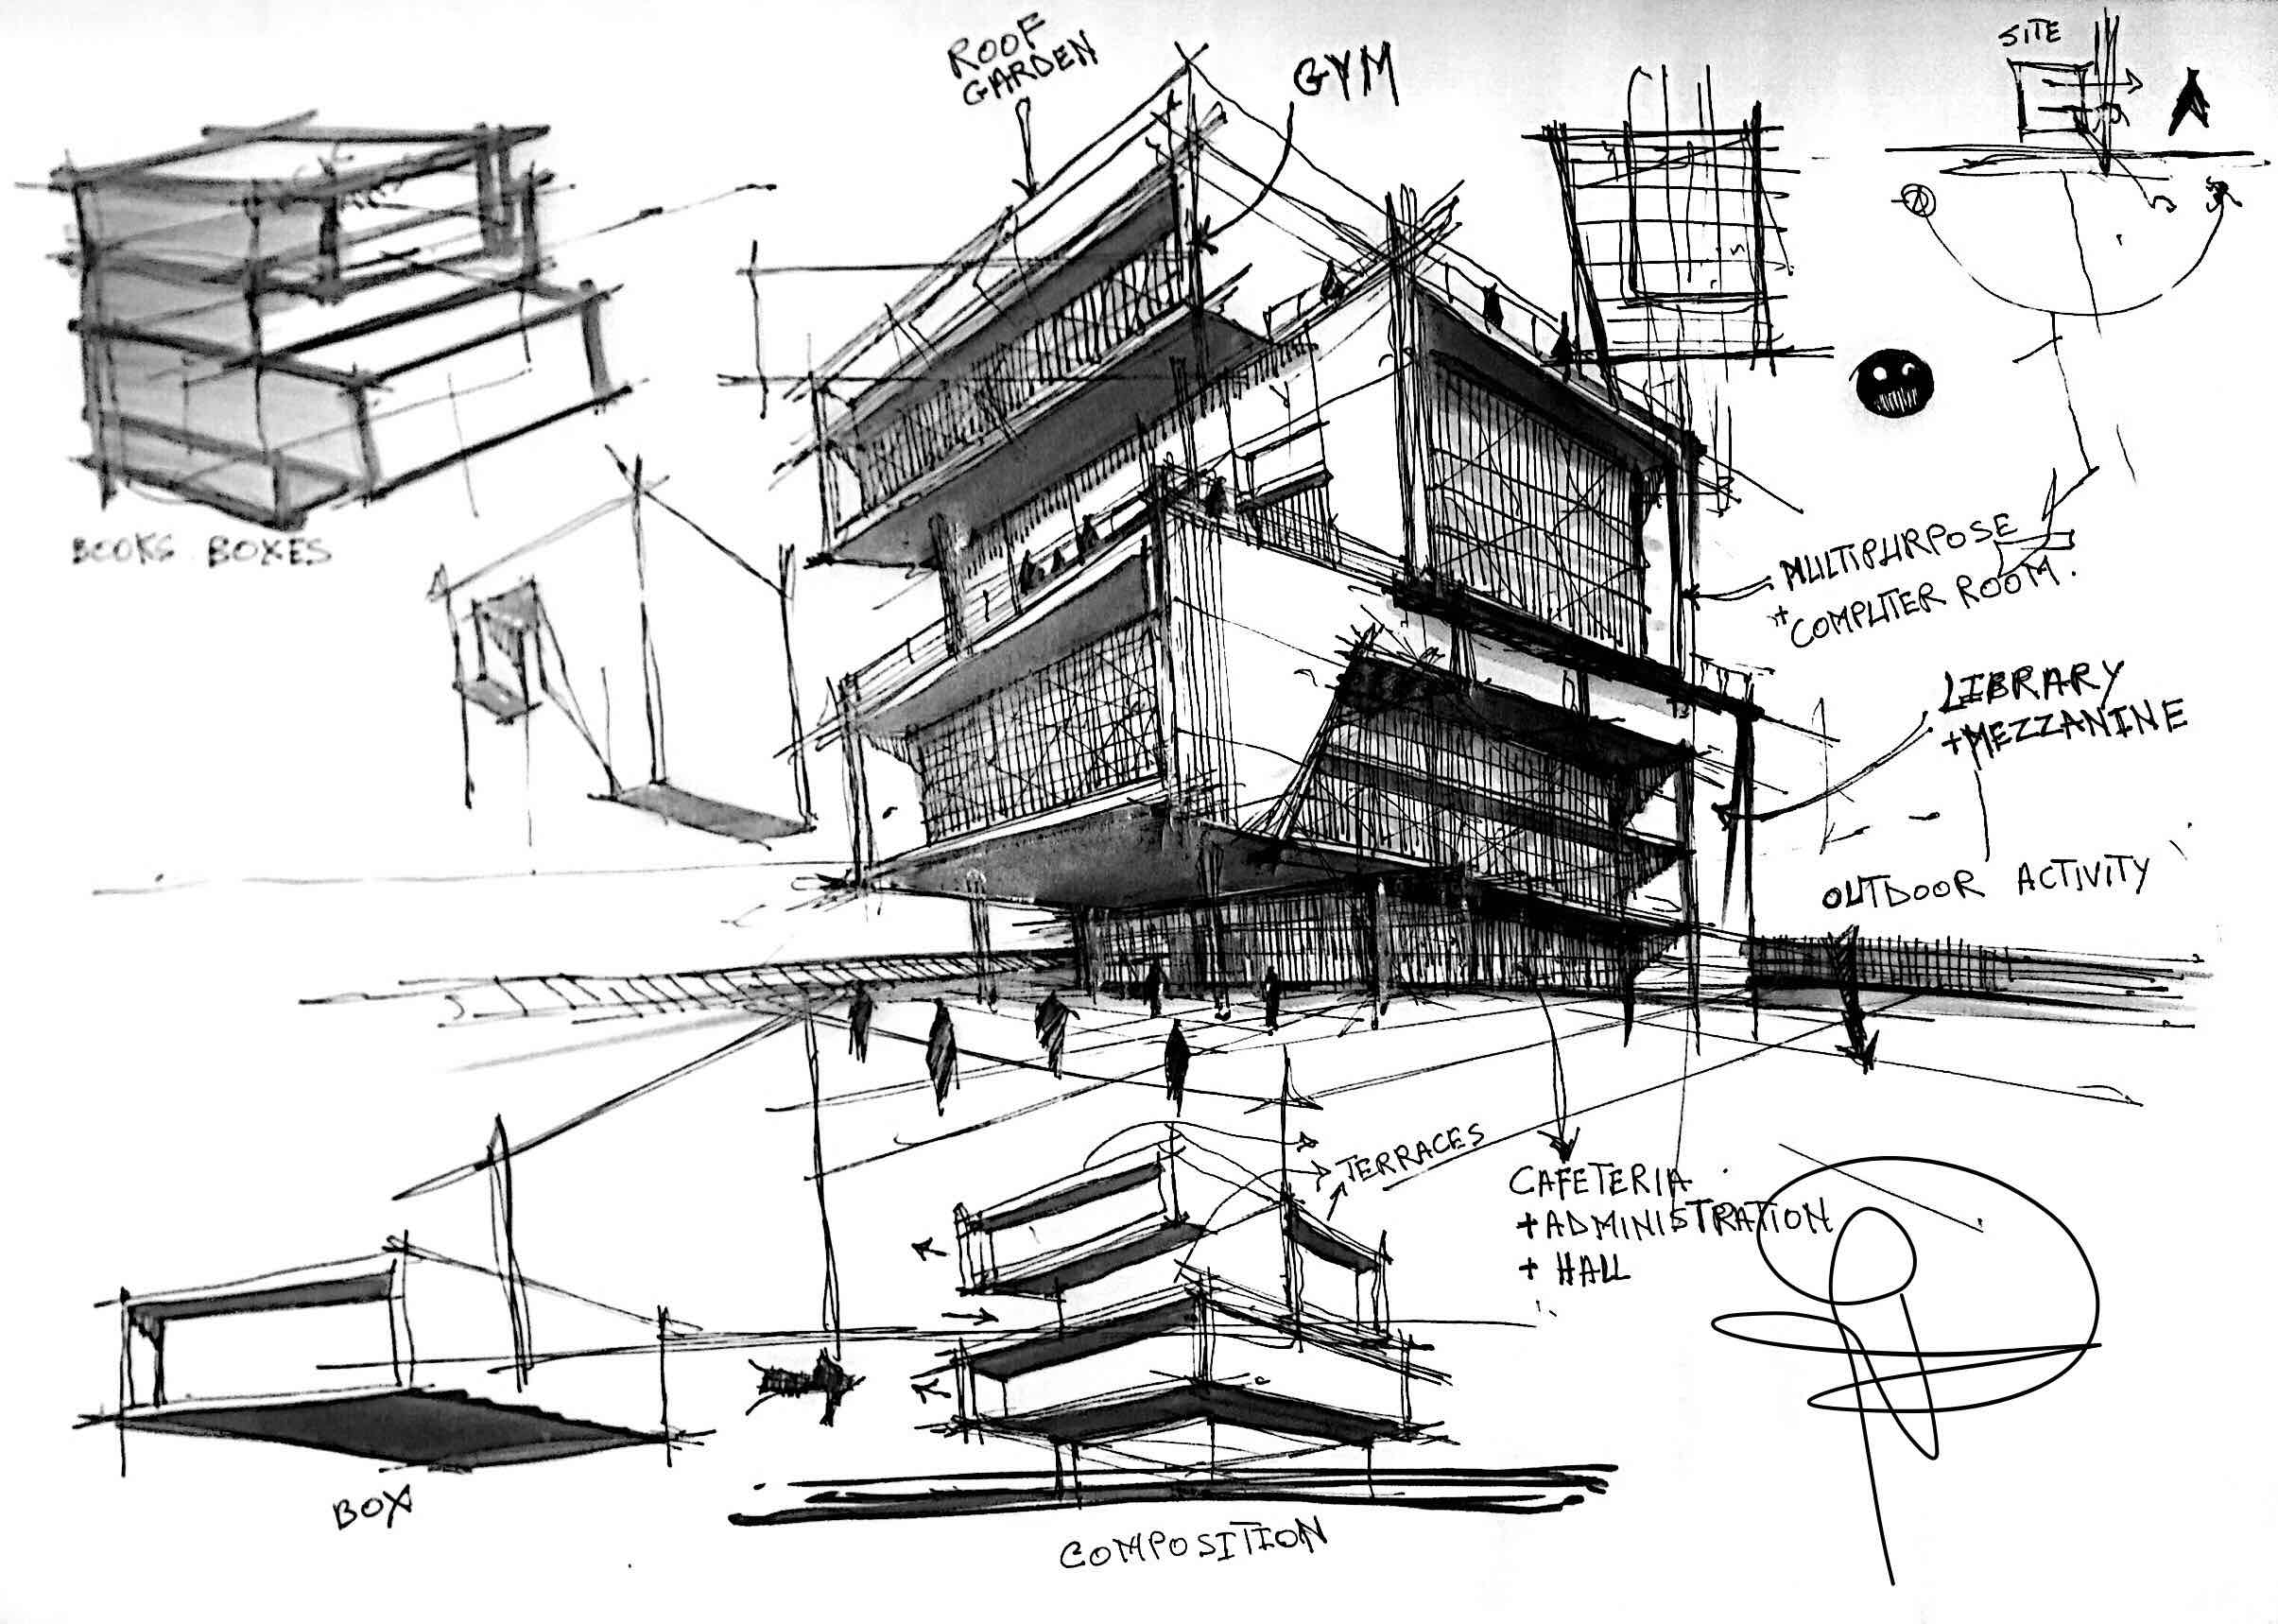 ROOF
GARDEN
GYM
SITE
BOOKS BOXES
MULTIPURPOSE
+COMPUTER ROOM.
LIBRARY
+MEZZANINE
OUTDOOR ACTIVITY
TERRACES
CAFETERIA
+ADMINISTRATION
+ HALL
BOX
COMPOSITION